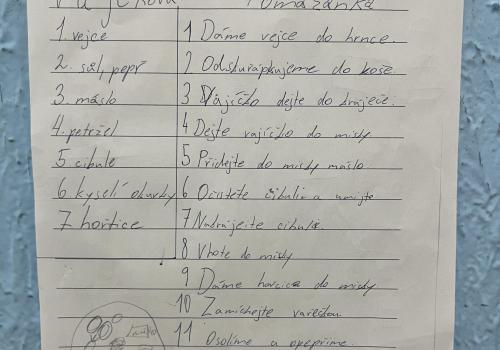 Vajíčková Pomazánka
1. vejce
2. sůl, pepř
3. máslo
4. petržel
5. cibule
6. kyselí okurky
7 hořtice
1 Dáme vejce do hrnce.
2. Odskořápkujeme do koše.
3 Vajíčko dejte do kráječe.
4 Dejte vajíčko do mísy
5 Přidejte do mísy máslo.
6 Očistěte cibuli a umijte
7 Nakrájejte cibuli.
8 Vhoте do mísy
9 Dáme horcica do mísy
10 Zamíchejte vařeškou
11 Osolíme a opepříme.